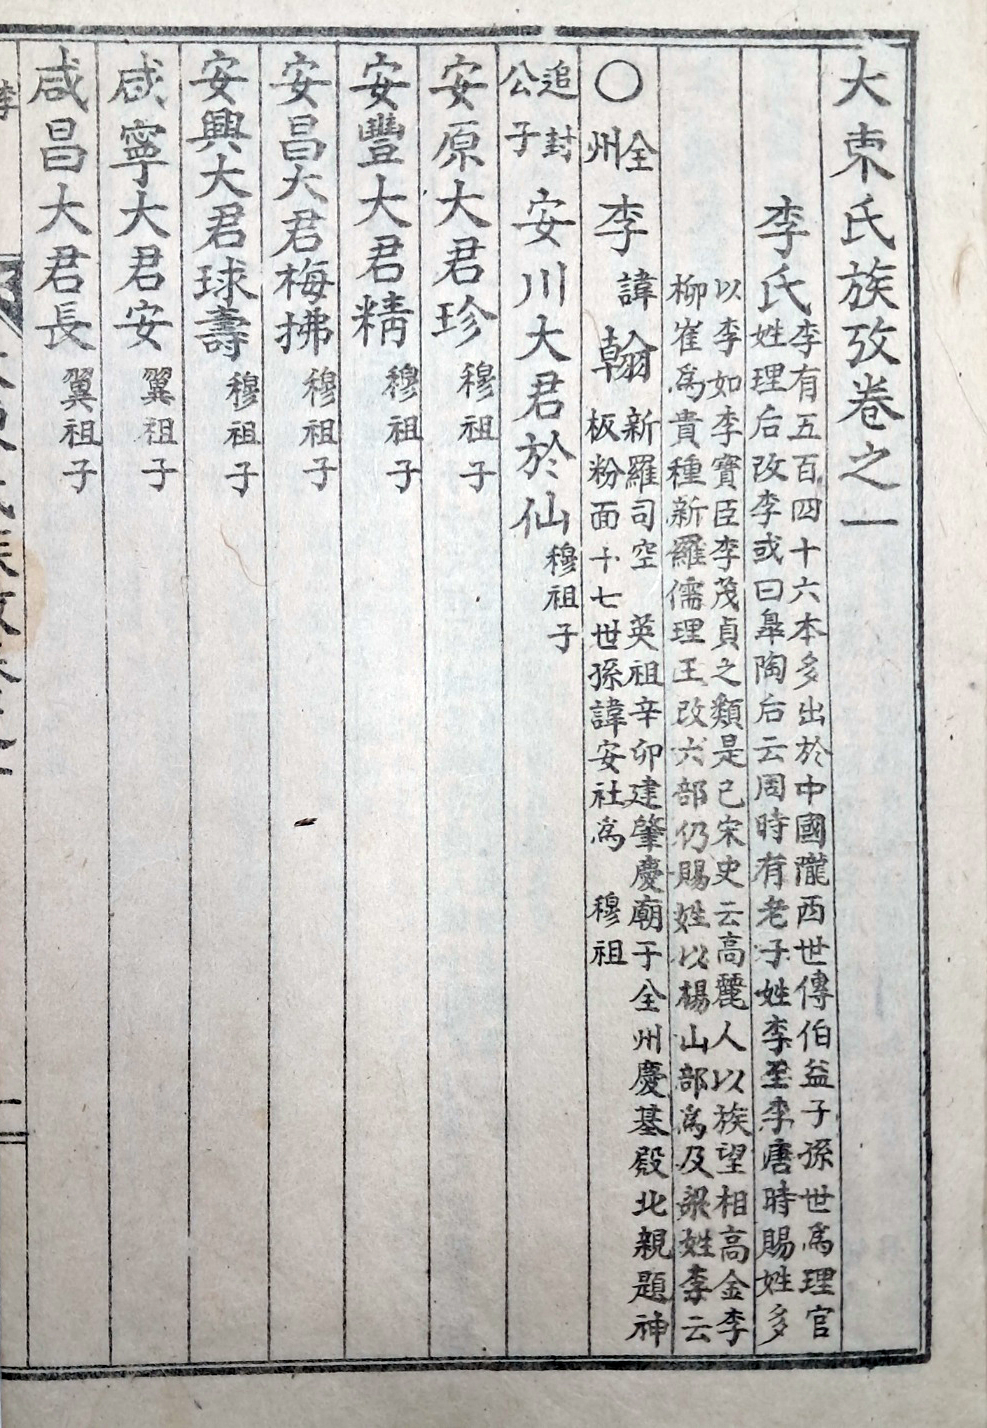 大東氏族攷卷之一
李氏
李有五百四十六本多出於中國隴西世傳伯益子孫世爲理官
姓理后改李或曰皐陶后云周時有老子姓李至李唐時賜姓多
以李如李寶臣李茂貞之類是已宋史云高麗人以族望相高金李
柳崔爲貴種新羅儒理王改六部仍賜姓以楊山部爲及梁姓李云
○全州李 諱翰
新羅司空 英祖辛卯建肇慶廟于全州慶基殿北親題神
板粉面十七世孫諱安社爲 穆祖
追封公子 安川大君於仙 穆祖子
安原大君珍 穆祖子
安豐大君精 穆祖子
安昌大君梅拂 穆祖子
安興大君球壽 穆祖子
咸寧大君安 翼祖子
咸昌大君長 翼祖子